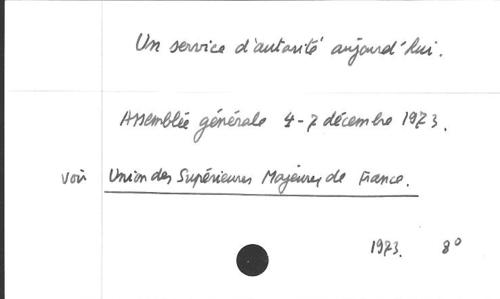 Un service d'autorité aujourd'hui.
Assemblée générale 4-7 décembre 1973.
voir Union des Supérieures Majeures de France.
1973. 8°